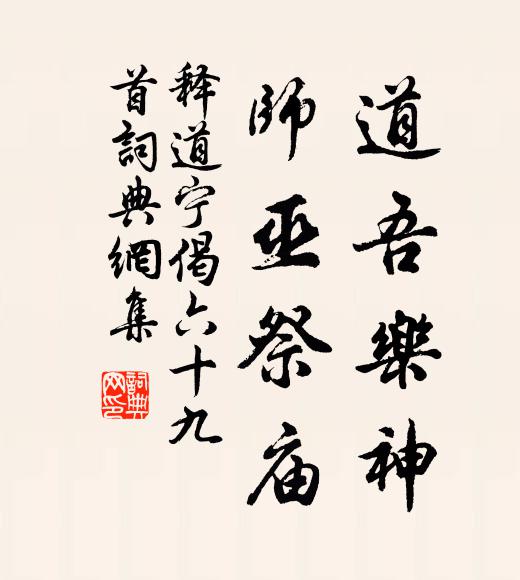 道吾樂神
師巫祭庙
释道宁偈六十九
首詞典網集
詞典网印